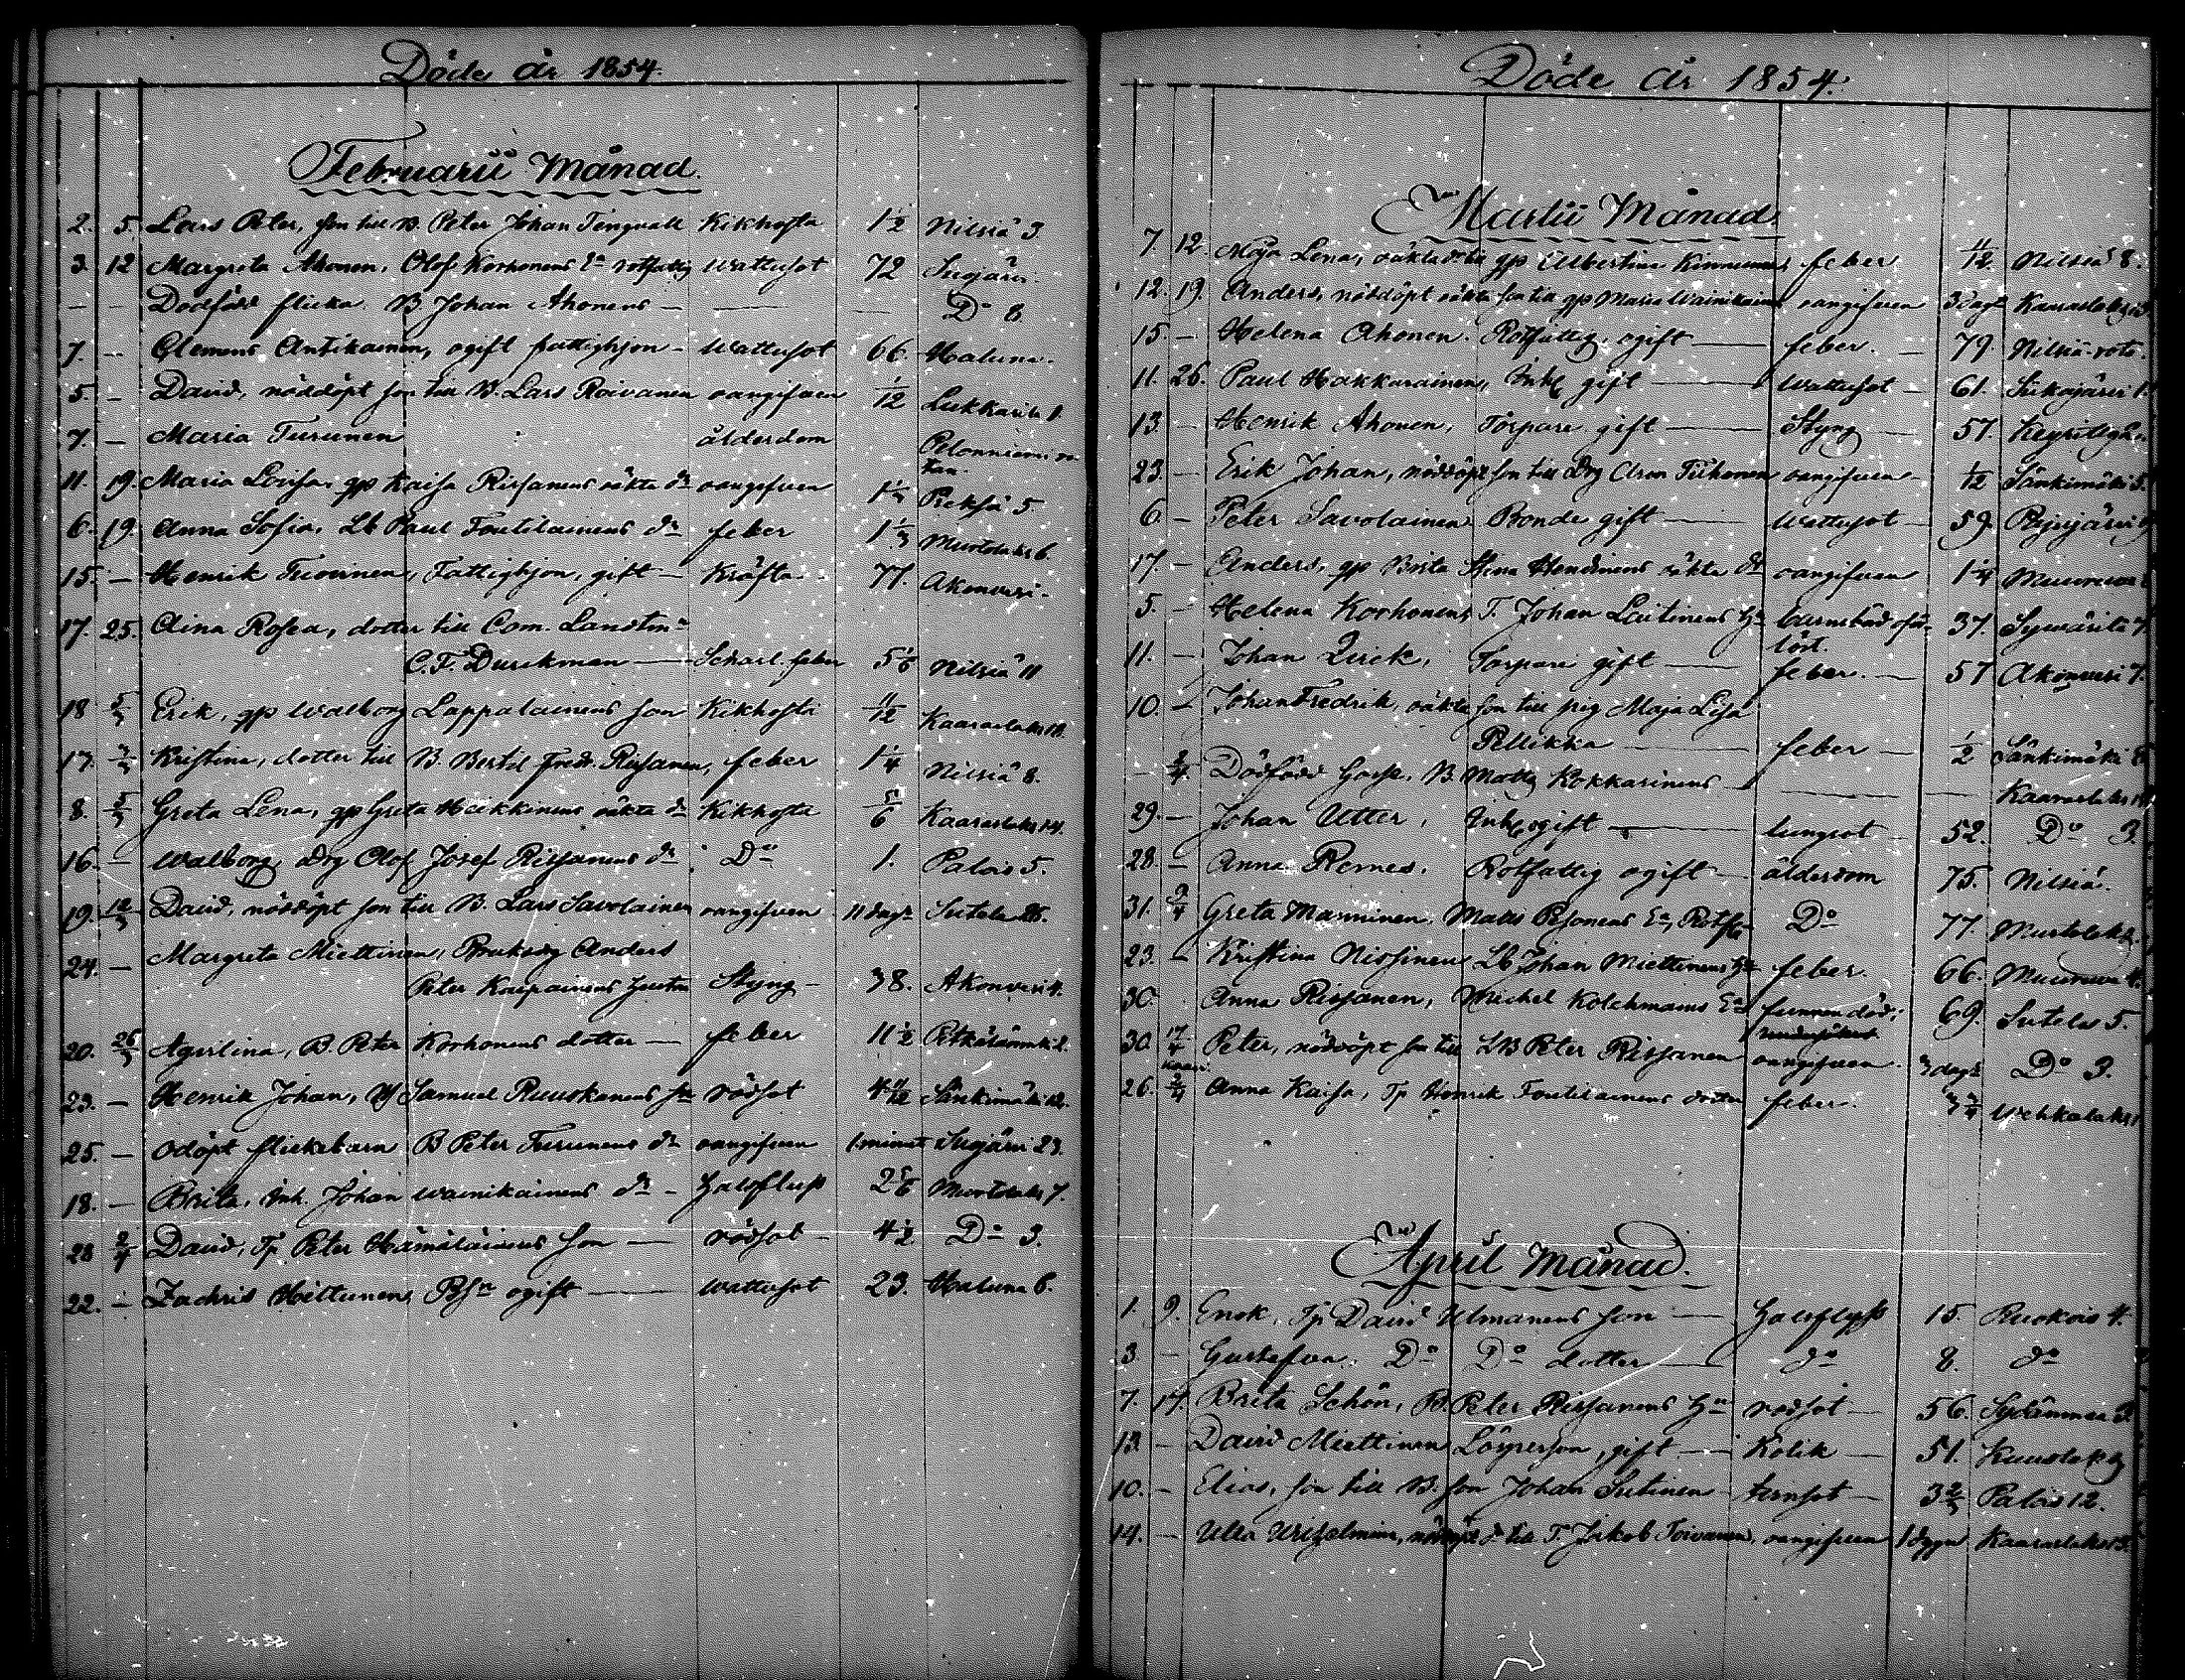 Döde år 1854.
Februarii Månad.
2. 5. Lars Peter, son till B. Peter Johan Tengvall Kikhosta 1 1/2 Nilsiä 3.
3. 12 Margreta Ahonen, Olof Korhonens Ea rotfattig Wattusot 72 Sujärvi.
— Dödfödd flicka. B Johan Ahonens — — — Do 8.
7. — Clemens Antikainen, ogift fattighjon — Wattusot 66. Haluna.
5. — David, nöddöpt son till B. Lars Roivanen oangifven 1/12 Lukkarila 1.
7. — Maria Turunen ålderdom
11. 19. Maria Lovisa, gp Kaisa Rissanens oäkta dr oangifven Pieksä 5
6. 19. Anna Sofia, Lb Paul Toutilainens dr feber Murtolaks 6.
15. — Henrik Tuovinen, Fattighjon, gift — Kräfta — 77. Akonvesi.
17. 25. Aina Rosea, dotter till Com. Lanstmn
C. F. Durckman — Scharl. feber 5 1/6 Nilsiä 11
18 5/3 Erik, gp Walborg Lappalainens son Kikhosta 11/12 Kaaraslaks 18.
17. Kristina, dotter till B. Bertil Fredr. Rissanen, feber 1 1/4 Nilsiä 8.
8. 5/3 Greta Lena, gp Greta Heikkinens oäkta dr Kikhosta 5/6 Kaaraslaks 14.
16. — Walborg, Drg Olof Josef Rissanens dr Do 1. Palois 5.
19. 12/3 David, nöddöpt son till B. Lars Savolainen oangifven 11 dagr Sutela 26.
24. — Margreta Miettinen, Brukarg Anders
Peter Kaipainens hustru Styng — 38. Akonvesi 4.
20. 26/3 Agerlina, B. Peter Korhonens dotter — feber 11 1/2 Pitkälännk 2.
23. — Henrik Johan, Samuel Ruuskanens sn rödsot 4 11/12 Sänkimäki 12.
25. — Odöpt flickebarn B Peter Turunens dr oangifven 1. minut Sujärvi 23.
18. — Brita, Inh. Johan Wainikainens dr — halsfluss 2 5/6 Murtolaks 7.
28 2/4 David, Tp Peter Hämäläinens son — rödsot — 4 1/2 Do 3.
22. — Zachris Hiltunen, ogift — Wattusot 23. Haluna 6.
Döde år 1854.
Martii Månad.
7. 12. Maja Lena, oäkta dr till gp Albertina Kinnunens feber 11/12. Nilsiä 8.
12. 19. Anders, nöddöpt oäkta son till gp Maria Wainikainen oangifven 3 dagr Kaaraslaks
15. — Helena Ahonen. Rotfattig, ogift — feber. — 79. Nilsiä rote
11. 26. Paul Hakkarainen, Inh gift — Wattusot — 61. Siikajärvi 1.
13. — Henrik Ahonen, Torpare gift — Styng — 57.
23. — Erik Johan, nöddöpt son till Drg Aron Tiihonen oangifven — 1/12 Sänkimäki 5.
6. — Peter Savolainen Bonde gift — Wattusot — 59.
17. — Anders, gp Brita Stina oäkta oangifven 1 1/4 Muuruvesi
5. — Helena Korhonen, T. Johan Laitinens Hu barnsbäd oför-
löst. 37. Syväritä 7.
11. — Johan Qvick, Torpare gift — feber. — 57 Akonvesi 7.
10. — Johan Fredrik, oäkta son till pig Maja Lisa
Pellikka — feber — 1/2 Sänkimäki 8
— 2/4. Dödfödd Gosse, B. Matts Kokkarinens — — — Kaaraslaks
29. — Johan Utter, Inh ogift — lungsot — 52. Do 3.
28. — Anna Remes. Rotfattig ogift — ålderdom 75. Nilsiä.
31. 9/4 Greta Manninen, Mats Pesonens Ea, Rotf Do 77. Murtolaks.
23. — Kristina Nissinen Lb Johan Miettinens feber 66. Muuruvesi 4.
30. Anna Rissanen, Michel Kolehmains Ea funnen död; 69. Sutela 5.
30. 17/4 Peter, nöddöpt son till LB Peter Rissanen oangifven. 3 dagr Do 3.
26. 2/4 Anna Kaisa, Tp Henrik Toutilainens dotter feber. 3/4 Wehkalaks 1
April Månad.
1. 9. Enok, Tp David Ulmanens son — halsflyss 15. Ruokois 4.
3. — Gustafva. Do Do dotter — do 8. do
7. 17. Brita Schön, B. Peter Rissanens Hu rödsot — 56. Sydänmaa 3.
13. — David Miettinen Löspersson, gift — Kolik — 51. Kuuslaks
10. — Elias, son till B. son Johan Sutinen — 3 2/3 Palois 12.
14. — Ulla Wilhelmina, nöddöpt dr till T. Jakob Toivanen, oangifven 1 dygn Kaaraslaks 13.